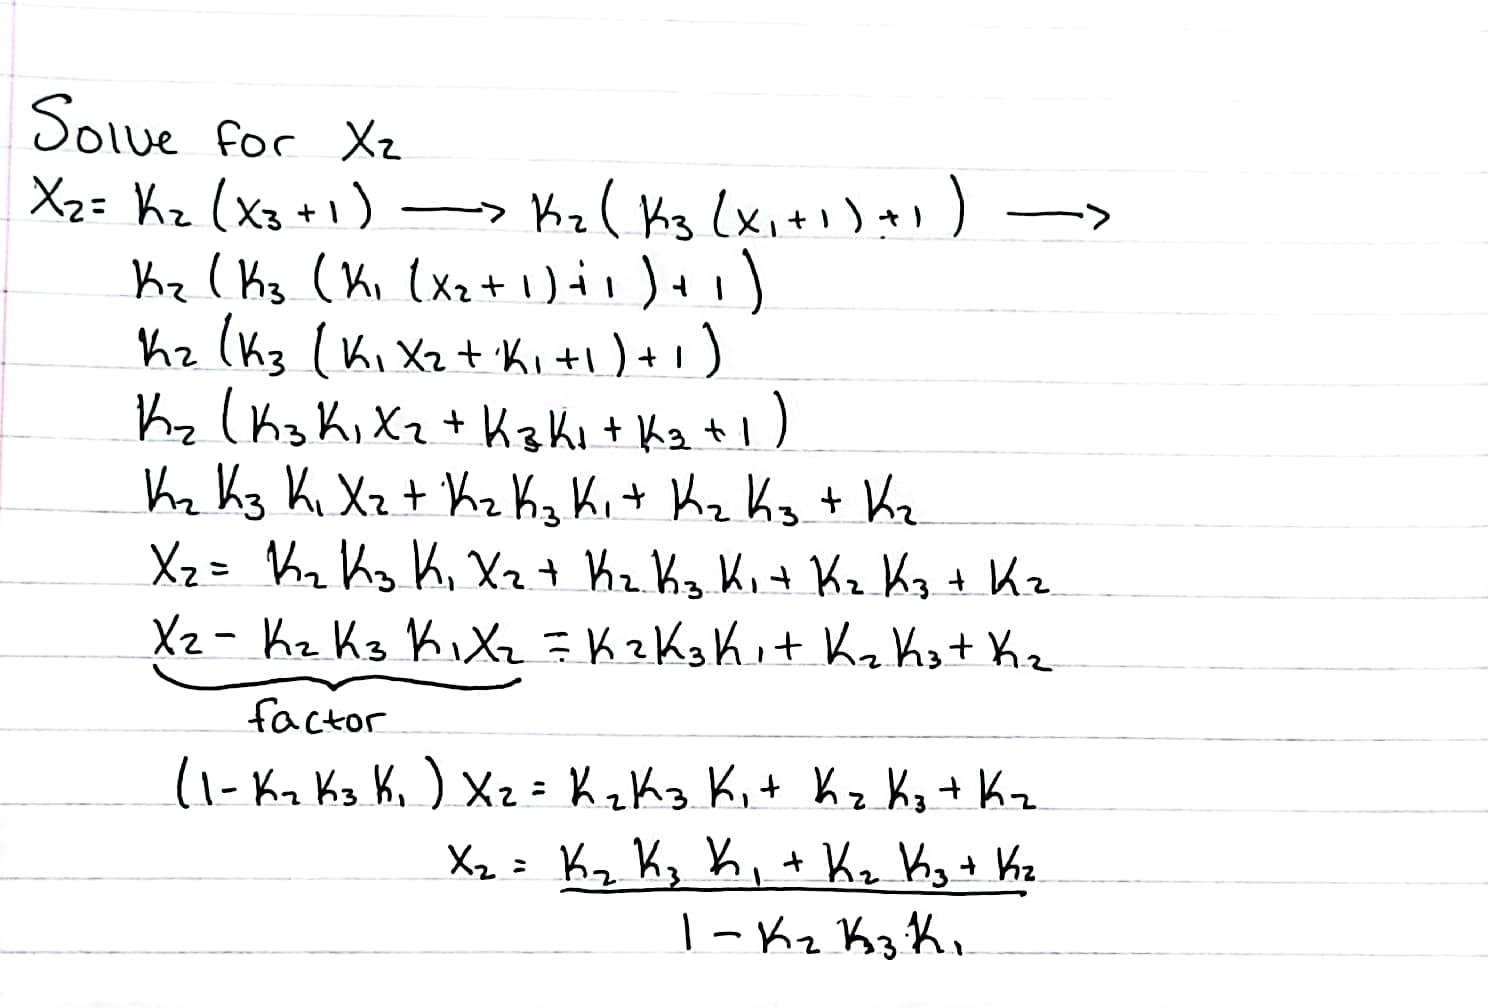 Solve for X₂
X₂ = K₂ (X₃ + 1) ⟶ K₂ ( K₃ (X₁ + 1) + 1 ) ⟶
K₂ ( K₃ ( K₁ (X₂ + 1) + 1 ) + 1 )
K₂ ( K₃ ( K₁ X₂ + K₁ + 1 ) + 1 )
K₂ ( K₃ K₁ X₂ + K₃ K₁ + K₃ + 1 )
K₂ K₃ K₁ X₂ + K₂ K₃ K₁ + K₂ K₃ + K₂
X₂ = K₂ K₃ K₁ X₂ + K₂ K₃ K₁ + K₂ K₃ + K₂
X₂ - K₂ K₃ K₁ X₂ = K₂ K₃ K₁ + K₂ K₃ + K₂
factor
(1 - K₂ K₃ K₁ ) X₂ = K₂ K₃ K₁ + K₂ K₃ + K₂
X₂ = K₂ K₃ K₁ + K₂ K₃ + K₂
1 - K₂ K₃ K₁